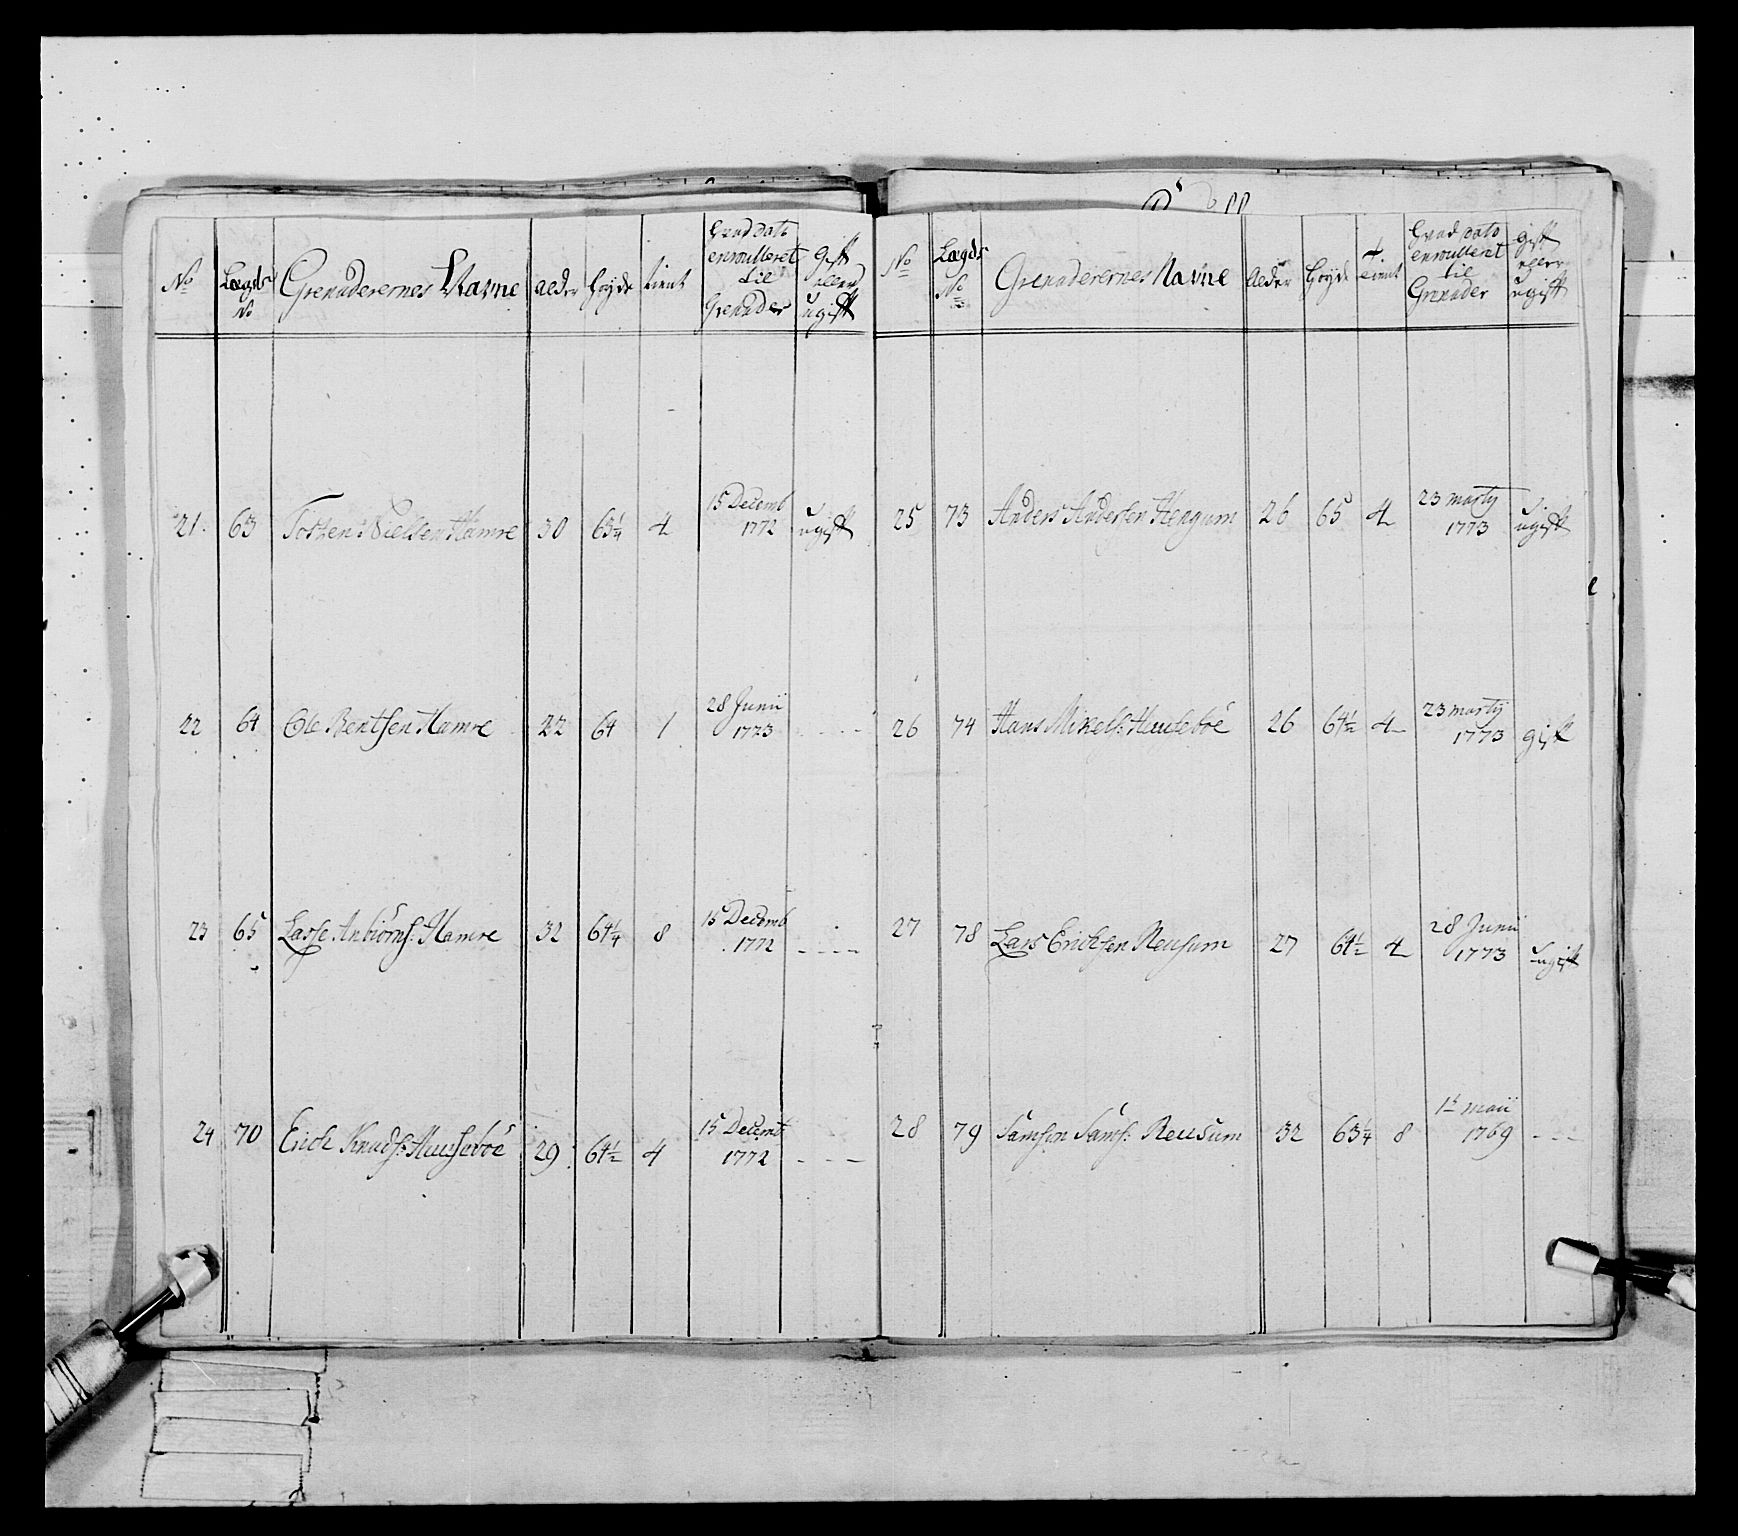 No Lægds No Grenaderernes Navne aeder Høyde tient Hvad dato enroulleret til Grenader Gift eller ugift
21. 63 Tosten Nielsen Hamre 30 63¼ 4 15 Decemb 1772 ugift
22 64 Ole Bentsen Hamre 22 64 1 28 Junii 1773 - - - -
23 65 Lasse Anbiörns: Hamre 32 64¼ 8 15 Decemb 1772 - - - -
24 70 Erich Knuds: Huuseboe 29 64½ 4 15 Decemb 1772 - - - -
No Lægds No Grenaderernes Navne Aeder Høyde tient Hvad dato enroullerit til Grenader gift eller ugift
25 73 Anders Andersen Hengum 26 65 4 23 marty 1773 ugift
26 74 Hans Mikels: Huuseboe 26 64½ 4 23 marty 1773 gift
27 78 Lars Erichsen Reusum 27 64½ 4 28 Junii 1773 ugift
28 79 Samson Sams: Reusum 32 63¼ 8 1t maii 1769 - - -